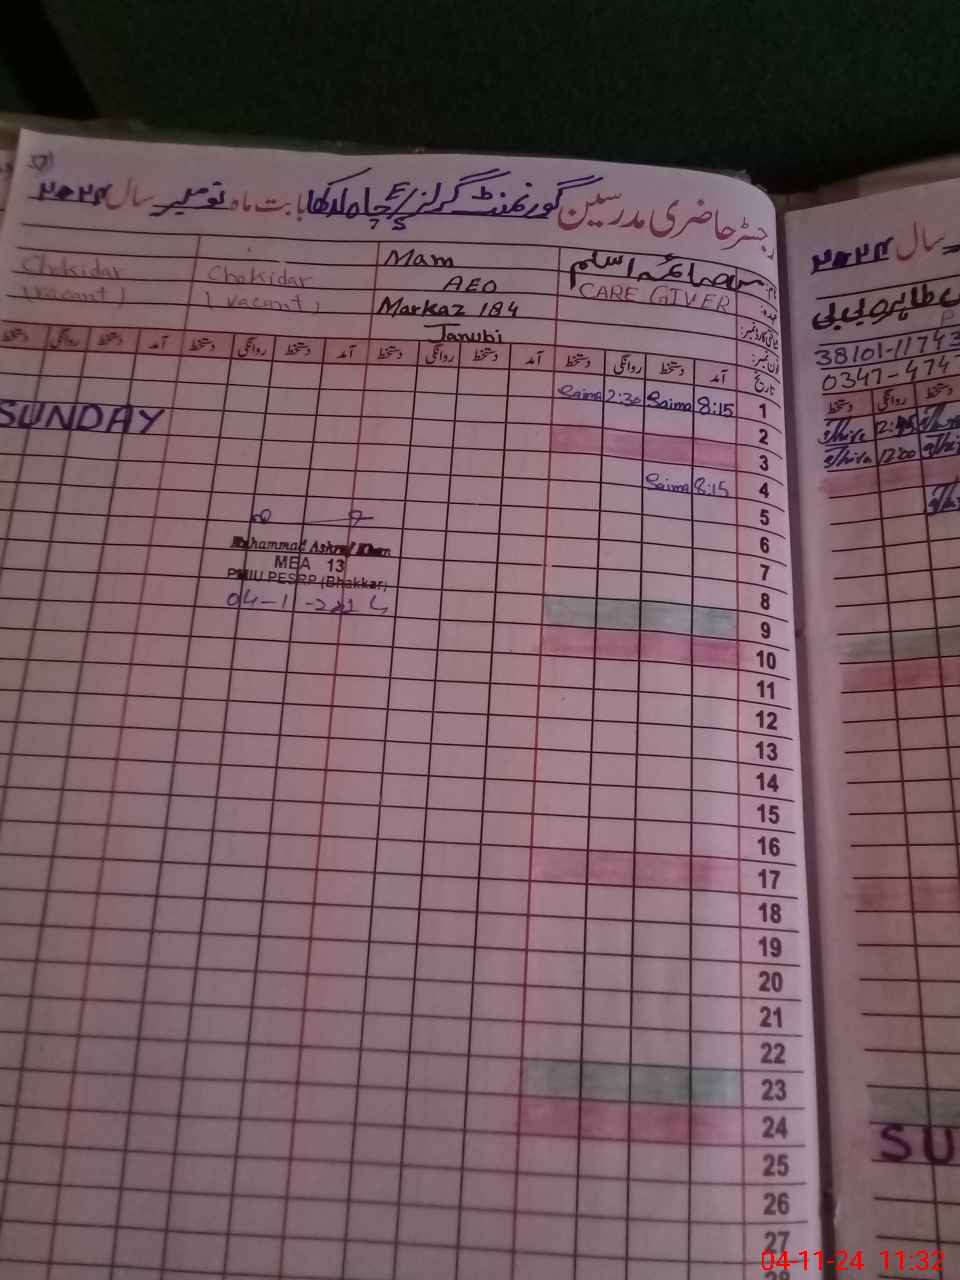 رجسٹر حاضری مدرسین گورنمنٹ گرلز E/S چاہ لدکھا بابت ماہ نومبر سال ۲۰۲۴
سال ۲۰۲۴
Chokidar Chokidar Mam صائمہ اسلم
(vacant) (vacant) AEO CARE GIVER
Markaz 184
Janubi
طاہرہ بی بی
38101-11743
0347-474
دستخط روانگی دستخط آمد دستخط روانگی دستخط آمد دستخط روانگی دستخط آمد دستخط روانگی دستخط آمد تاریخ
دستخط روانگی دستخط
1 8:15 Saima 2:30 Saima
2:45
SUNDAY
2
12:00
3
4 8:15 Saima
5
6
7
Muhammad Ashraf Khan
MEA 13
PMIU PESRP (Bhakkar)
04-11-2024
8
9
10
11
12
13
14
15
16
17
18
19
20
21
22
23
24
SU
25
26
27
28
04-11-24 11:32